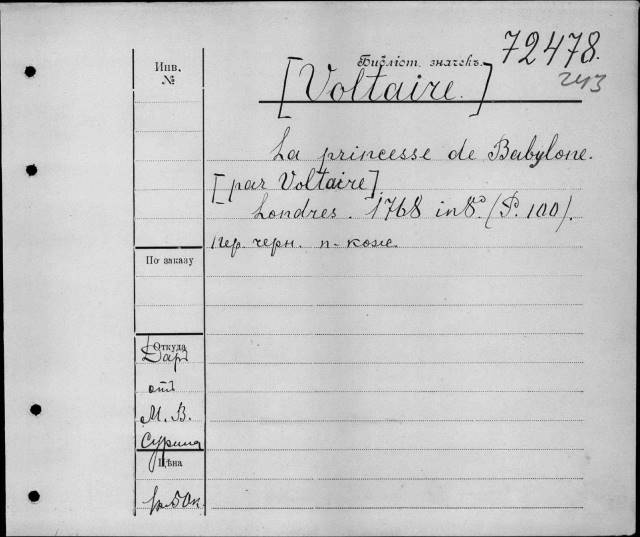 72478.
Инв.
№
Библіот. значекъ.
243
[Voltaire.]
La princesse de Babylone.
[par Voltaire].
Londres. 1768 in 8º. (P. 100).
пер. черн. п-кожи
По заказу
Откуда
Даръ
отъ
М. В.
Сурина
Цѣна
50к.